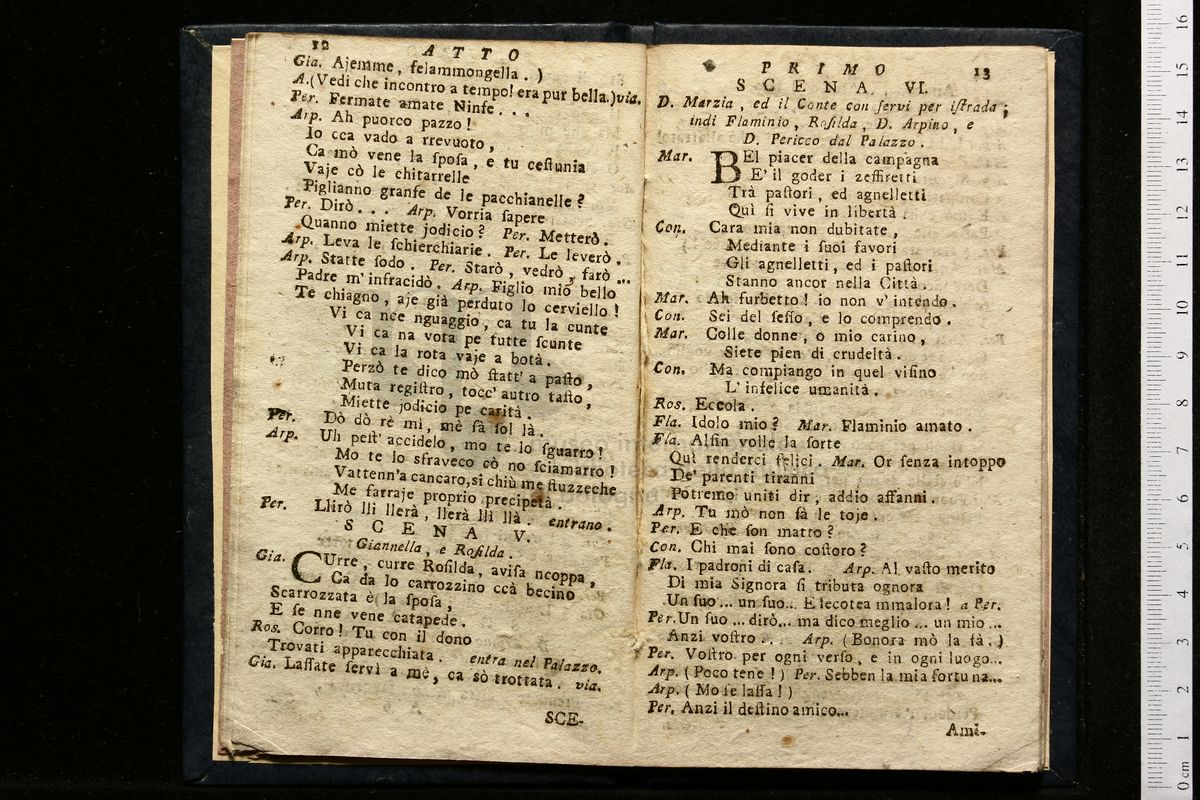 12 ATTO
Gia. Ajemme, felammongella. )
A. (Vedi che incontro a tempo! era pur bella.) via.
Per. Fermate amate Ninfe...
Arp. Ah puorco pazzo!
Io cca vado a rrevuoto,
Ca mò vene la ſpoſa, e tu ceſtunia
Vaje cò le chitarrelle
Piglianno granfe de le pacchianelle?
Per. Dirò... Arp. Vorria ſapere
Quanno miette jodicio? Per. Metterò.
Arp. Leva le ſchierchiarie. Per. Le leverò.
Arp. Statte ſodo. Per. Starò, vedrò, farò ...
Padre m' infracidò. Arp. Figlio mio bello
Te chiagno, aje già perduto lo cerviello!
Vi ca nce nguaggio, ca tu la cunte
Vi ca na vota pe tutte ſcunte
Vi ca la rota vaje a botà.
Perzò te dico mò ſtatt' a paſto,
Muta regiſtro, tocc' autro taſto,
Miette jodicio pe carità.
Per. Dò dò rè mi, mè fà ſol là.
Arp. Uh peſt' accidelo, mo te lo ſguarro!
Mo te lo sfraveco cò no ſciamarro!
Vattenn'a cancaro, si chiù me ſtuzzeche
Me farraje proprio precipetà.
Per. Llirò lli llerà, llerà lli llà. entrano.
SCENA V.
Giannella, e Roſilda.
Gia. CUrre, curre Roſilda, aviſa ncoppa,
Ca da lo carrozzino ccà becino
Scarrozzata è la ſpoſa,
E ſe nne vene catapede.
Ros. Corro! Tu con il dono
Trovati apparecchiata. entra nel Palazzo.
Gia. Laſſate ſervì a me, ca sò trottata. via.
SCE-
PRIMO 13
SCENA VI.
D. Marzia, ed il Conte con ſervi per iſtrada;
indi Flaminio, Roſilda, D. Arpino, e
D. Pericco dal Palazzo.
Mar. BEl piacer della campagna
E' il goder i zeffiretti
Trà paſtori, ed agnelletti
Quì ſi vive in libertà.
Con. Cara mia non dubitate,
Mediante i ſuoi favori
Gli agnelletti, ed i paſtori
Stanno ancor nella Città.
Mar. Ah furbetto! io non v' intendo.
Con. Sei del ſeſſo, e lo comprendo.
Mar. Colle donne, o mio carino,
Siete pien di crudeltà.
Con. Ma compiango in quel viſino
L' infelice umanità.
Ros. Eccola.
Fla. Idolo mio? Mar. Flaminio amato.
Fla. Alfin volle la ſorte
Quì renderci felici. Mar. Or ſenza intoppo
De' parenti tiranni
Potremo uniti dir, addio affanni.
Arp. Tu mò non ſà le toje.
Per. E che ſon matto?
Con. Chi mai ſono coſtoro?
Fla. I padroni di caſa. Arp. Al vaſto merito
Di mia Signora ſi tributa ognora
Un ſuo ... un ſuo... E ſecotea mmalora! a Per.
Per. Un ſuo ... dirò... ma dico meglio ... un mio ...
Anzi voſtro ... Arp. (Bonora mò la fà.)
Per. Voſtro per ogni verſo, e in ogni luogo...
Arp. (Poco tene!) Per. Sebben la mia fortuna...
Arp. (Mo ſe laſſa!)
Per. Anzi il deſtino amico...
Ami-